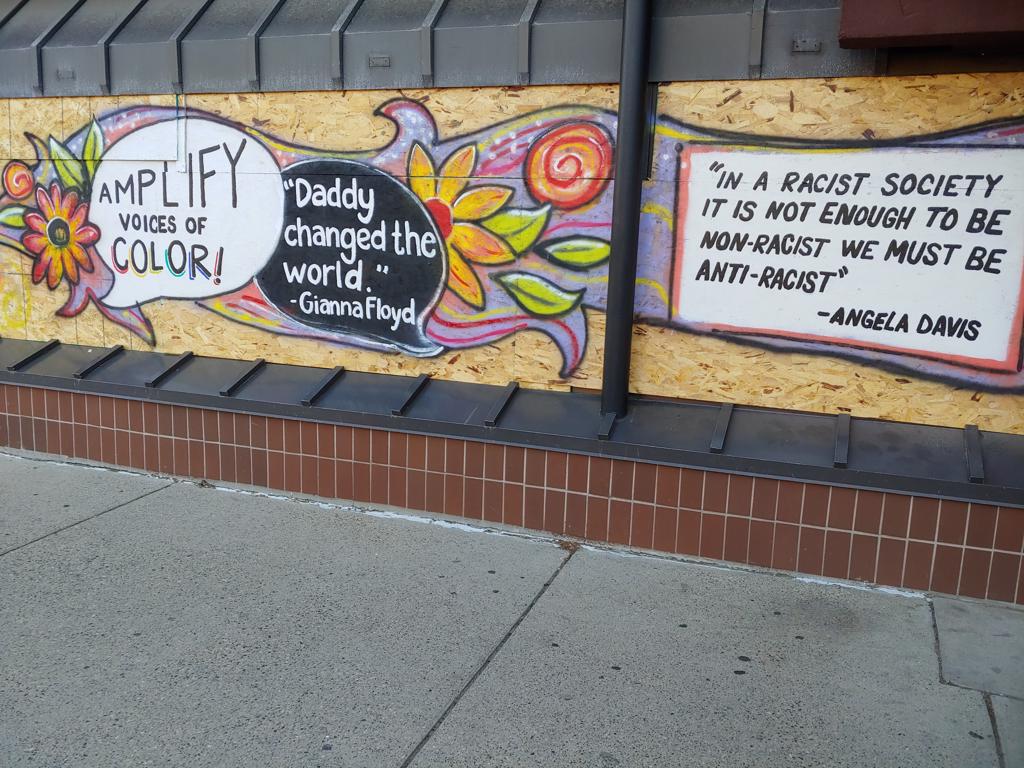 AMPLIFY
VOICES OF
COLOR!
"Daddy
changed the
world."
-Gianna Floyd
"IN A RACIST SOCIETY
IT IS NOT ENOUGH TO BE
NON-RACIST WE MUST BE
ANTI-RACIST"
-ANGELA DAVIS